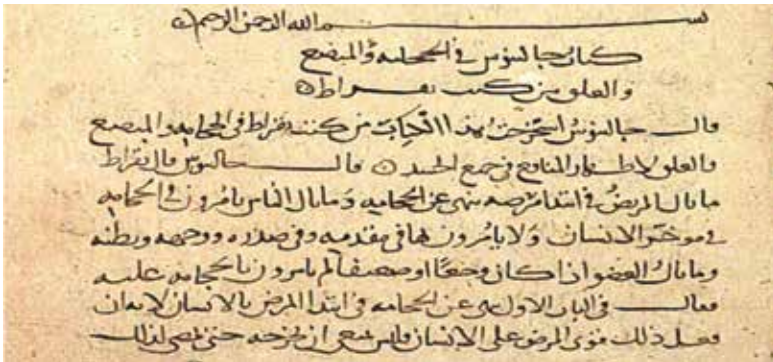 بسم الله الرحمن الرحيم
كتاب جالينوس في الحجامة والمبضع
والعلق من كتب بقراط
قال جالينوس استخرجت هذا الكتاب من كتب بقراط في الحجامه والمبضع
والعلق لاظهار المنافع في جميع الجسد قال جالينوس قال بقراط
ما بال المريض في ابتدا مرضه ينهى عن الحجامه وما بال الناس يامرون في الحجامه
في موخر الانسان ولا يامرون بها في مقدمه وفي صدره ووجهه وبطنه
وما بال العضو اذا كان وجعا او ضعيفا لم يامرون بالحجامه عليه
فقال في الباب الاول نهى عن الحجامه في ابتدا المرض بالانسان لانه ان
فعل ذلك قوى المرض على الانسان فليس ينبغي ان حتى لذلك